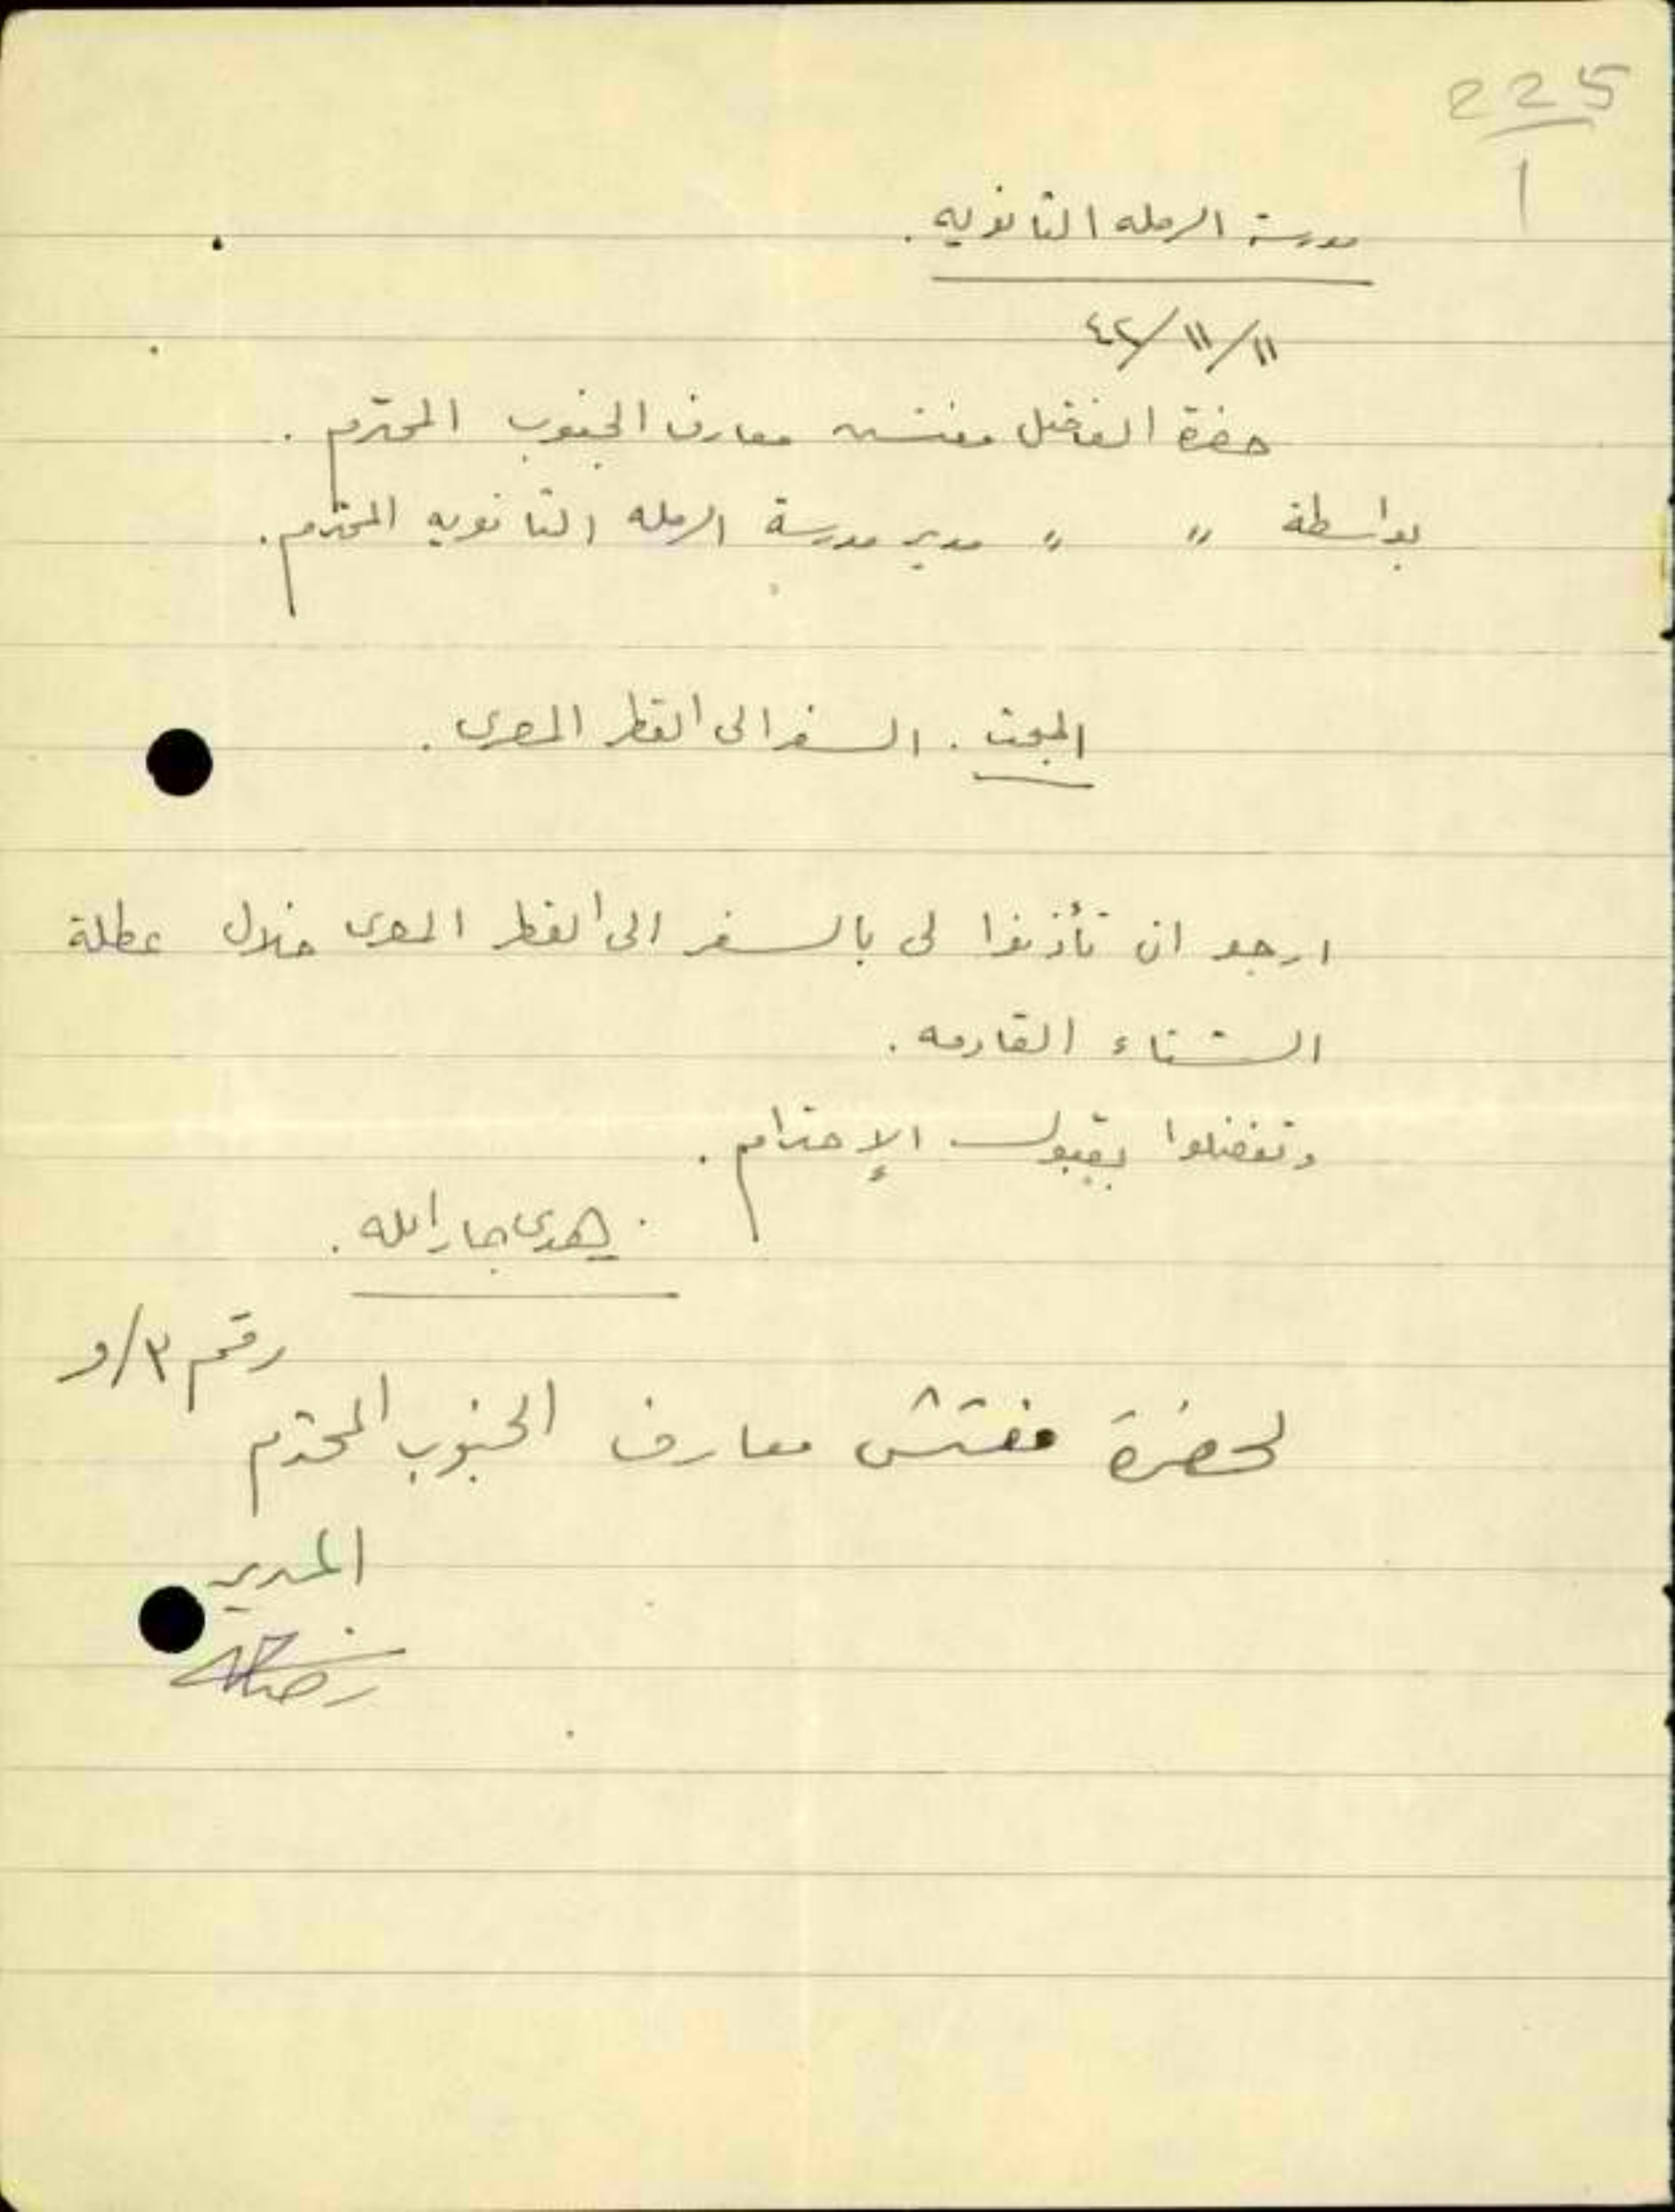 225
1
مدرسة الرمله الثانويه .
١١/١١/٤٢
حضرة الفاضل مفتش معارف الجنوب المحترم .
بواسطة " " مدير مدرسة الرمله الثانويه المحترم .
المبحث . السفر الى القطر المصرى .
ارجو ان تأذنوا لى بالسفر الى القطر المصرى خلال عطلة
الشتاء القادمه .
وتفضلوا بقبول الإحترام .
جار الله .
رقم ٣/و
لحضرة مفتش معارف الجنوب المحترم
المدير